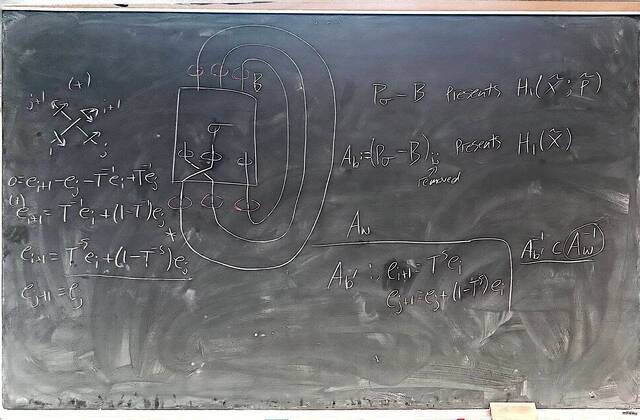 (+)
j+1 i+1
i j
0=e_{i+1}-e_j-T^{-1}e_i+T^{-1}e_j
(+)
e_{i+1}=T^{-1}e_i+(1-T^{-1})e_j
e_{i+1}=T^{-s}e_i+(1-T^{-s})e_j
e_{j+1}=e_j
B
P_G-B presents H_1(X̃;p̃)
A_b:=(P_G-B)_{ij} presents H_1(X̃)
removed
A_w
A_{b'}: e_{i+1}=T^s e_i
e_{j+1}=e_j+(1-T^s)e_i
A_{b'}^{-1} ⊂ A_w^{-1}